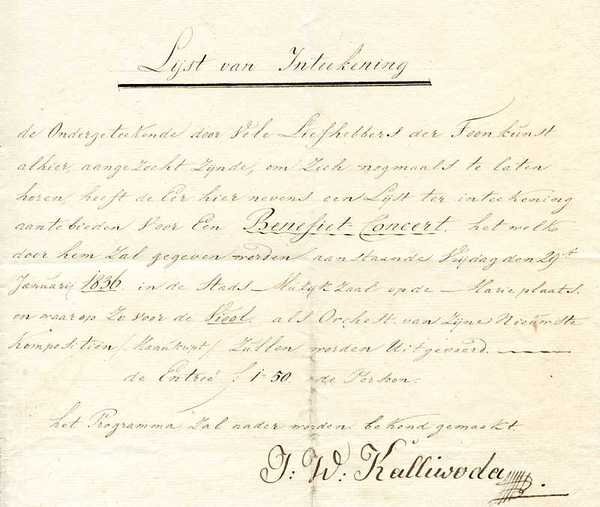 Lijst van Inteekening
de Ondergeteekende door Vele Liefhebbers der Toonkunst
alhier aangezocht Zijnde, om Zich nogmaals te laten
horen, heeft de Eer hier nevens een Lijst ter inteekening
aantebieden Voor Een Benefiet-Concert, het welk
door hem Zal gegeven worden aanstaande Vrijdag den 29st
Januarij 1836 in de Stads-Muzijk Zaal op de Marieplaats.
en waar op Zo voor de Viool als Orchest van Zijne Nieuwste
Komposition / Zullen worden Uitgevoerd.
de Entreé f 1-50 de Persoon.
het Programma Zal nader worden bekend gemaakt.
J: W: Kalliwoda